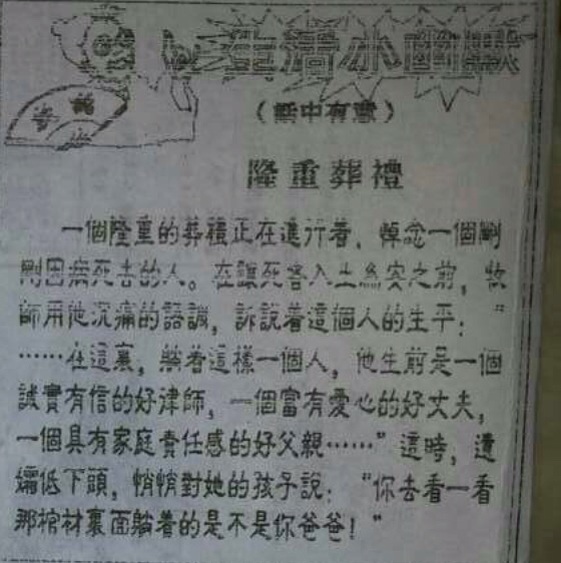 生活小幽默
（話中有意）
隆重葬禮
一個隆重的葬禮正在進行着，悼念一個剛
剛因病死去的人。在讓死者入土爲安之前，牧
師用他沉痛的語調，訴說着這個人的生平：“
……在這裏，躺着這樣一個人，他生前是一個
誠實有信的好律師，一個富有愛心的好丈夫，
一個具有家庭責任感的好父親……”這時，遺
孀低下頭，悄悄對她的孩子說：“你去看一看
那棺材裏面躺着的是不是你爸爸！”